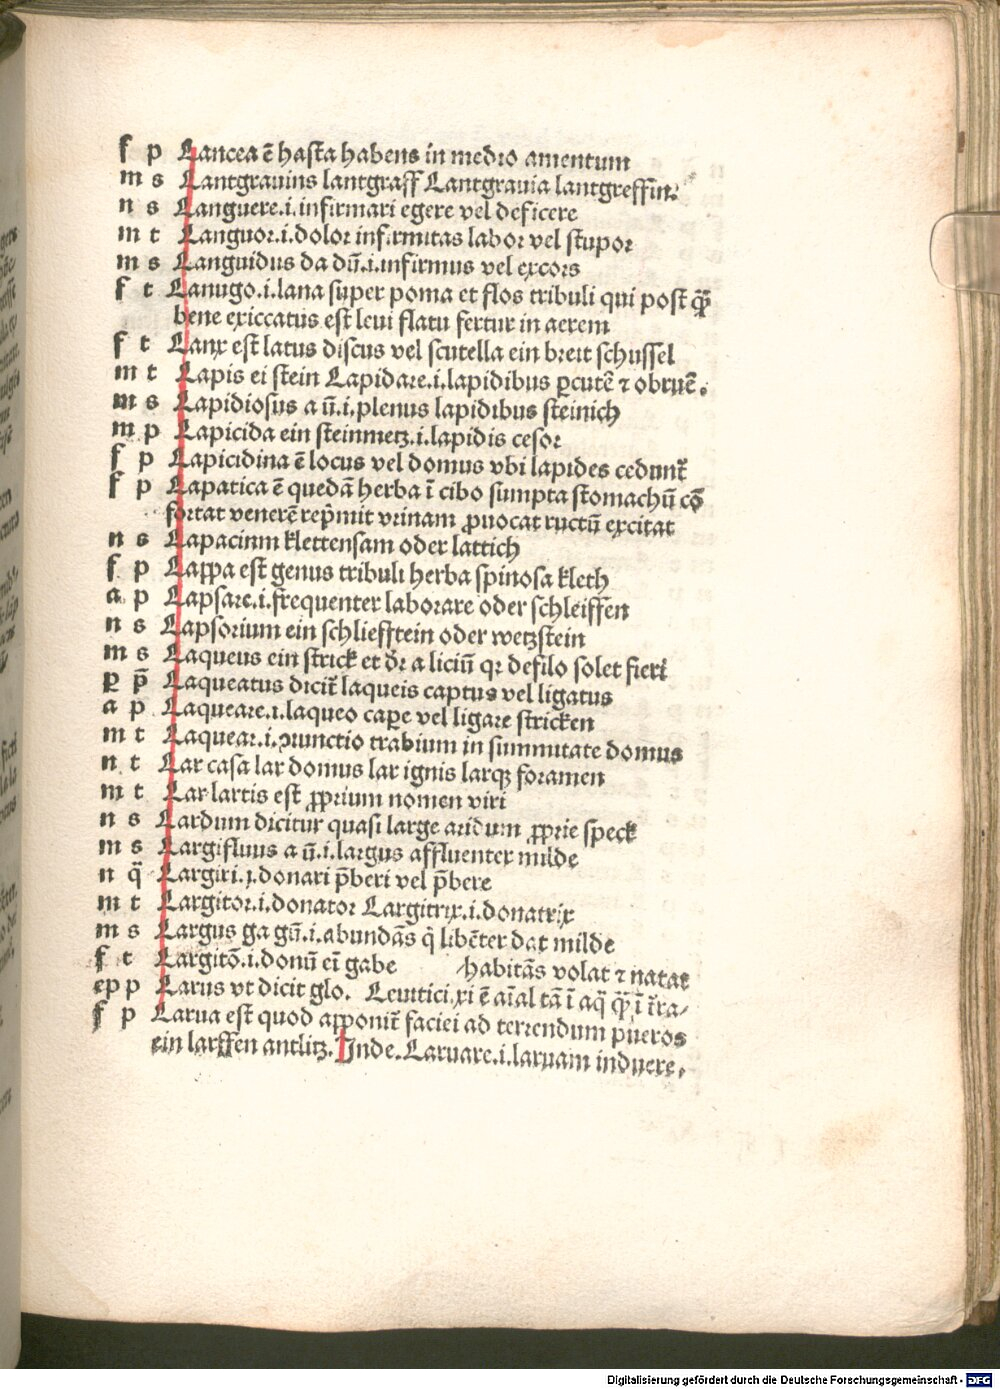 f p Lancea ē hasta habens in medio amentum
m s Lantgrauius lantgraff Lantgrauia lantgreffin.
n s Languere.i.infirmari egere vel deficere
m t Languor.i.dolor infirmitas labor vel stupor
m s Languidus da dū.i.infirmus vel excors
f t Lanugo.i.lana super poma et flos tribuli qui post q̄ꝫ
bene exiccatus est leui flatu fertur in aerem
f t Lanx est latus discus vel scutella ein breit schussel
m t Lapis ei stein Lapidare.i.lapidibus ꝑcutē ⁊ obruē.
m s Lapidiosus a ū.i.plenus lapidibus steinich
m p Lapicida ein steinmetz.i.lapidis cesor
f p Lapicidina ē locus vel domus vbi lapides cedunt᷑
f p Lapatica ē quedā herba ī cibo sumpta stomachū cō
fortat venerē rep̄mit vrinam ꝓuocat ructū excitat
n s Lapacium klettensam oder lattich
f p Lappa est genus tribuli herba spinosa kleth
a p Lapsare.i.frequenter laborare oder schleiffen
n s Lapsorium ein schliefftein oder wetzstein
m s Laqueus ein strick et dr̄ a liciū qꝛ de filo solet fieri
ꝑ p̄ Laqueatus dicit᷑ laqueis captus vel ligatus
a p Laqueare.i.laqueo caꝑe vel ligare stricken
m t Laquear.i.ꝯiunctio trabium in summitate domus
n t Lar casa lar domus lar ignis larqꝫ foramen
m t Lar lartis est ꝓprium nomen viri
n s Lardum dicitur quasi large aridum ꝓprie speck
m s Largifluus a ū.i.largus affluenter milde
n q̄ Largiri.i.donari p̄beri vel p̄bere
m t Largitor.i.donator Largitrix.i.donatrix
m s Largus ga gū.i.abundās q̄ libēter dat milde
f t Largitō.i.donū eī gabe habitās volat ⁊ natat
ep p Larus vt dicit glo. Leuitici.xi ē aīal tā ī aq̄ q̄ꝫ ī t̄ra/
f p Larua est quod apponit᷑ faciei ad terrendum pueros
ein larffen antlitz. Inde.Laruare.i.laruam induere.
Digitalisierung gefördert durch die Deutsche Forschungsgemeinschaft - DFG